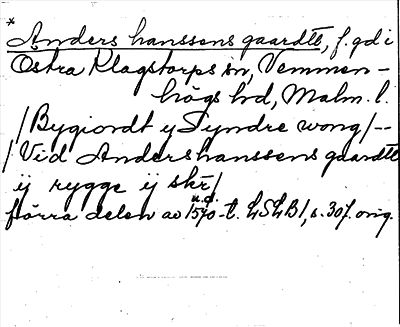 * Anders hanssens gaardtt, f. gd i
Östra Klagstorps sn, Vemmen-
högs hd, Malm. l.
/Bygiordt y Syndre wong/--
/Vid Andershanssens gaardtt
ij rygge ij skr/
n.d.
förra delen av 1570-t. LSLB1, s. 307. orig.